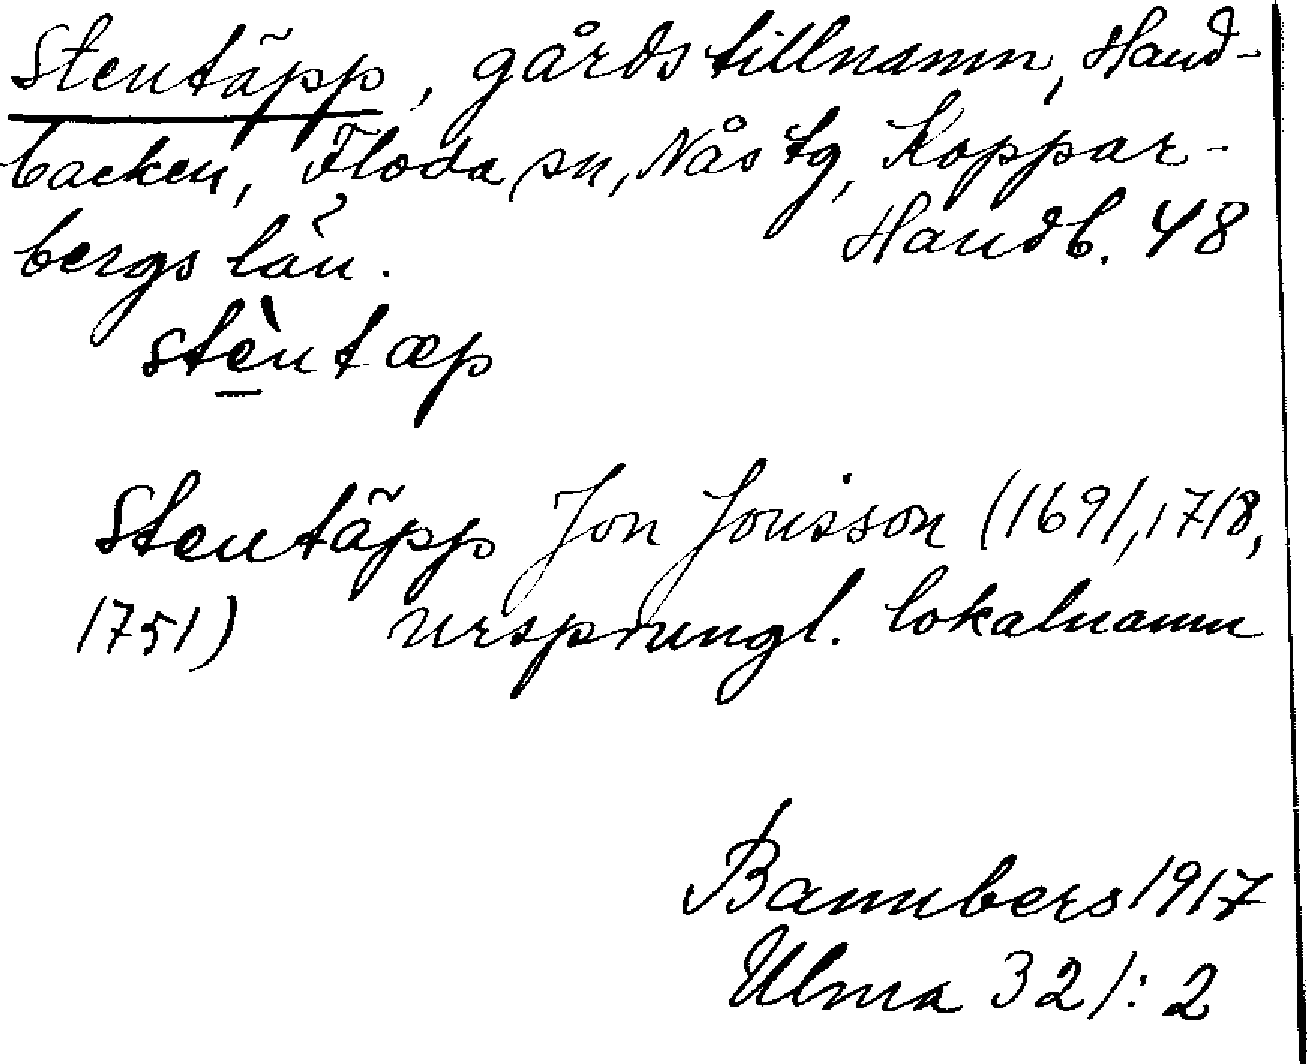 Stentäpp, gårdstillnamn, Hand-
backen, Floda sn, Nås tg, Koppar-
bergs län.
Handb. 48
stèntæp
Stentäpp Jon Jonsson (1691, 1718,
1751) ursprungl. lokalnamn
Bannbers 1917
Ulma 321:2